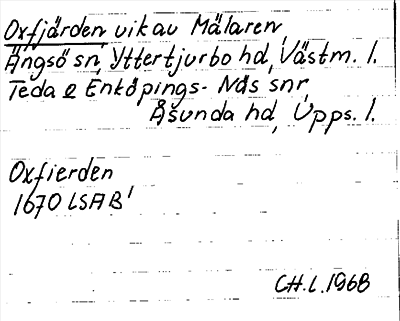 Oxfjärden, vik av Mälaren,
Ängsö sn, Yttertjurbo hd, Västm. l.
Teda o Enköpings-Näs snr
Åsunda hd, Upps. l.
Oxfierden
1670 LSA B¹
CH.L.1968